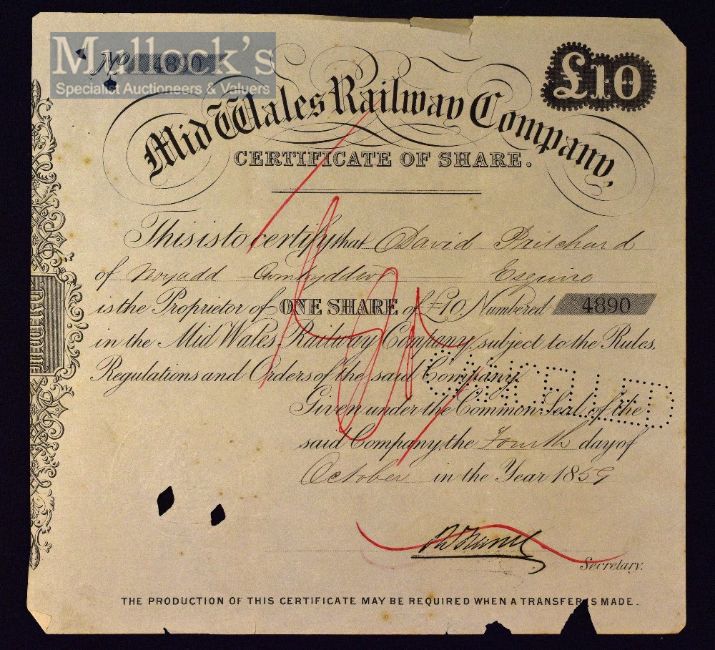 Mullock's
Specialist Auctioneers & Valuers
No. 4890
£10
Mid Wales Railway Company,
CERTIFICATE OF SHARE.
This is to certify that David Pritchard
of Esquire
is the Proprietor of ONE SHARE of £10 Numbered 4890
in the Mid Wales Railway Company, subject to the Rules,
Regulations and Orders of the said Company.
CANCELLED
Given under the Common Seal of the
said Company, the Fourth day of
October in the Year 1859
Secretary.
THE PRODUCTION OF THIS CERTIFICATE MAY BE REQUIRED WHEN A TRANSFER IS MADE.